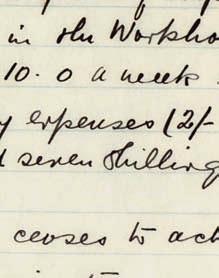 in the Workho
10. 0 a week.
y expenses (2/-
d seven shilling
ceases to act